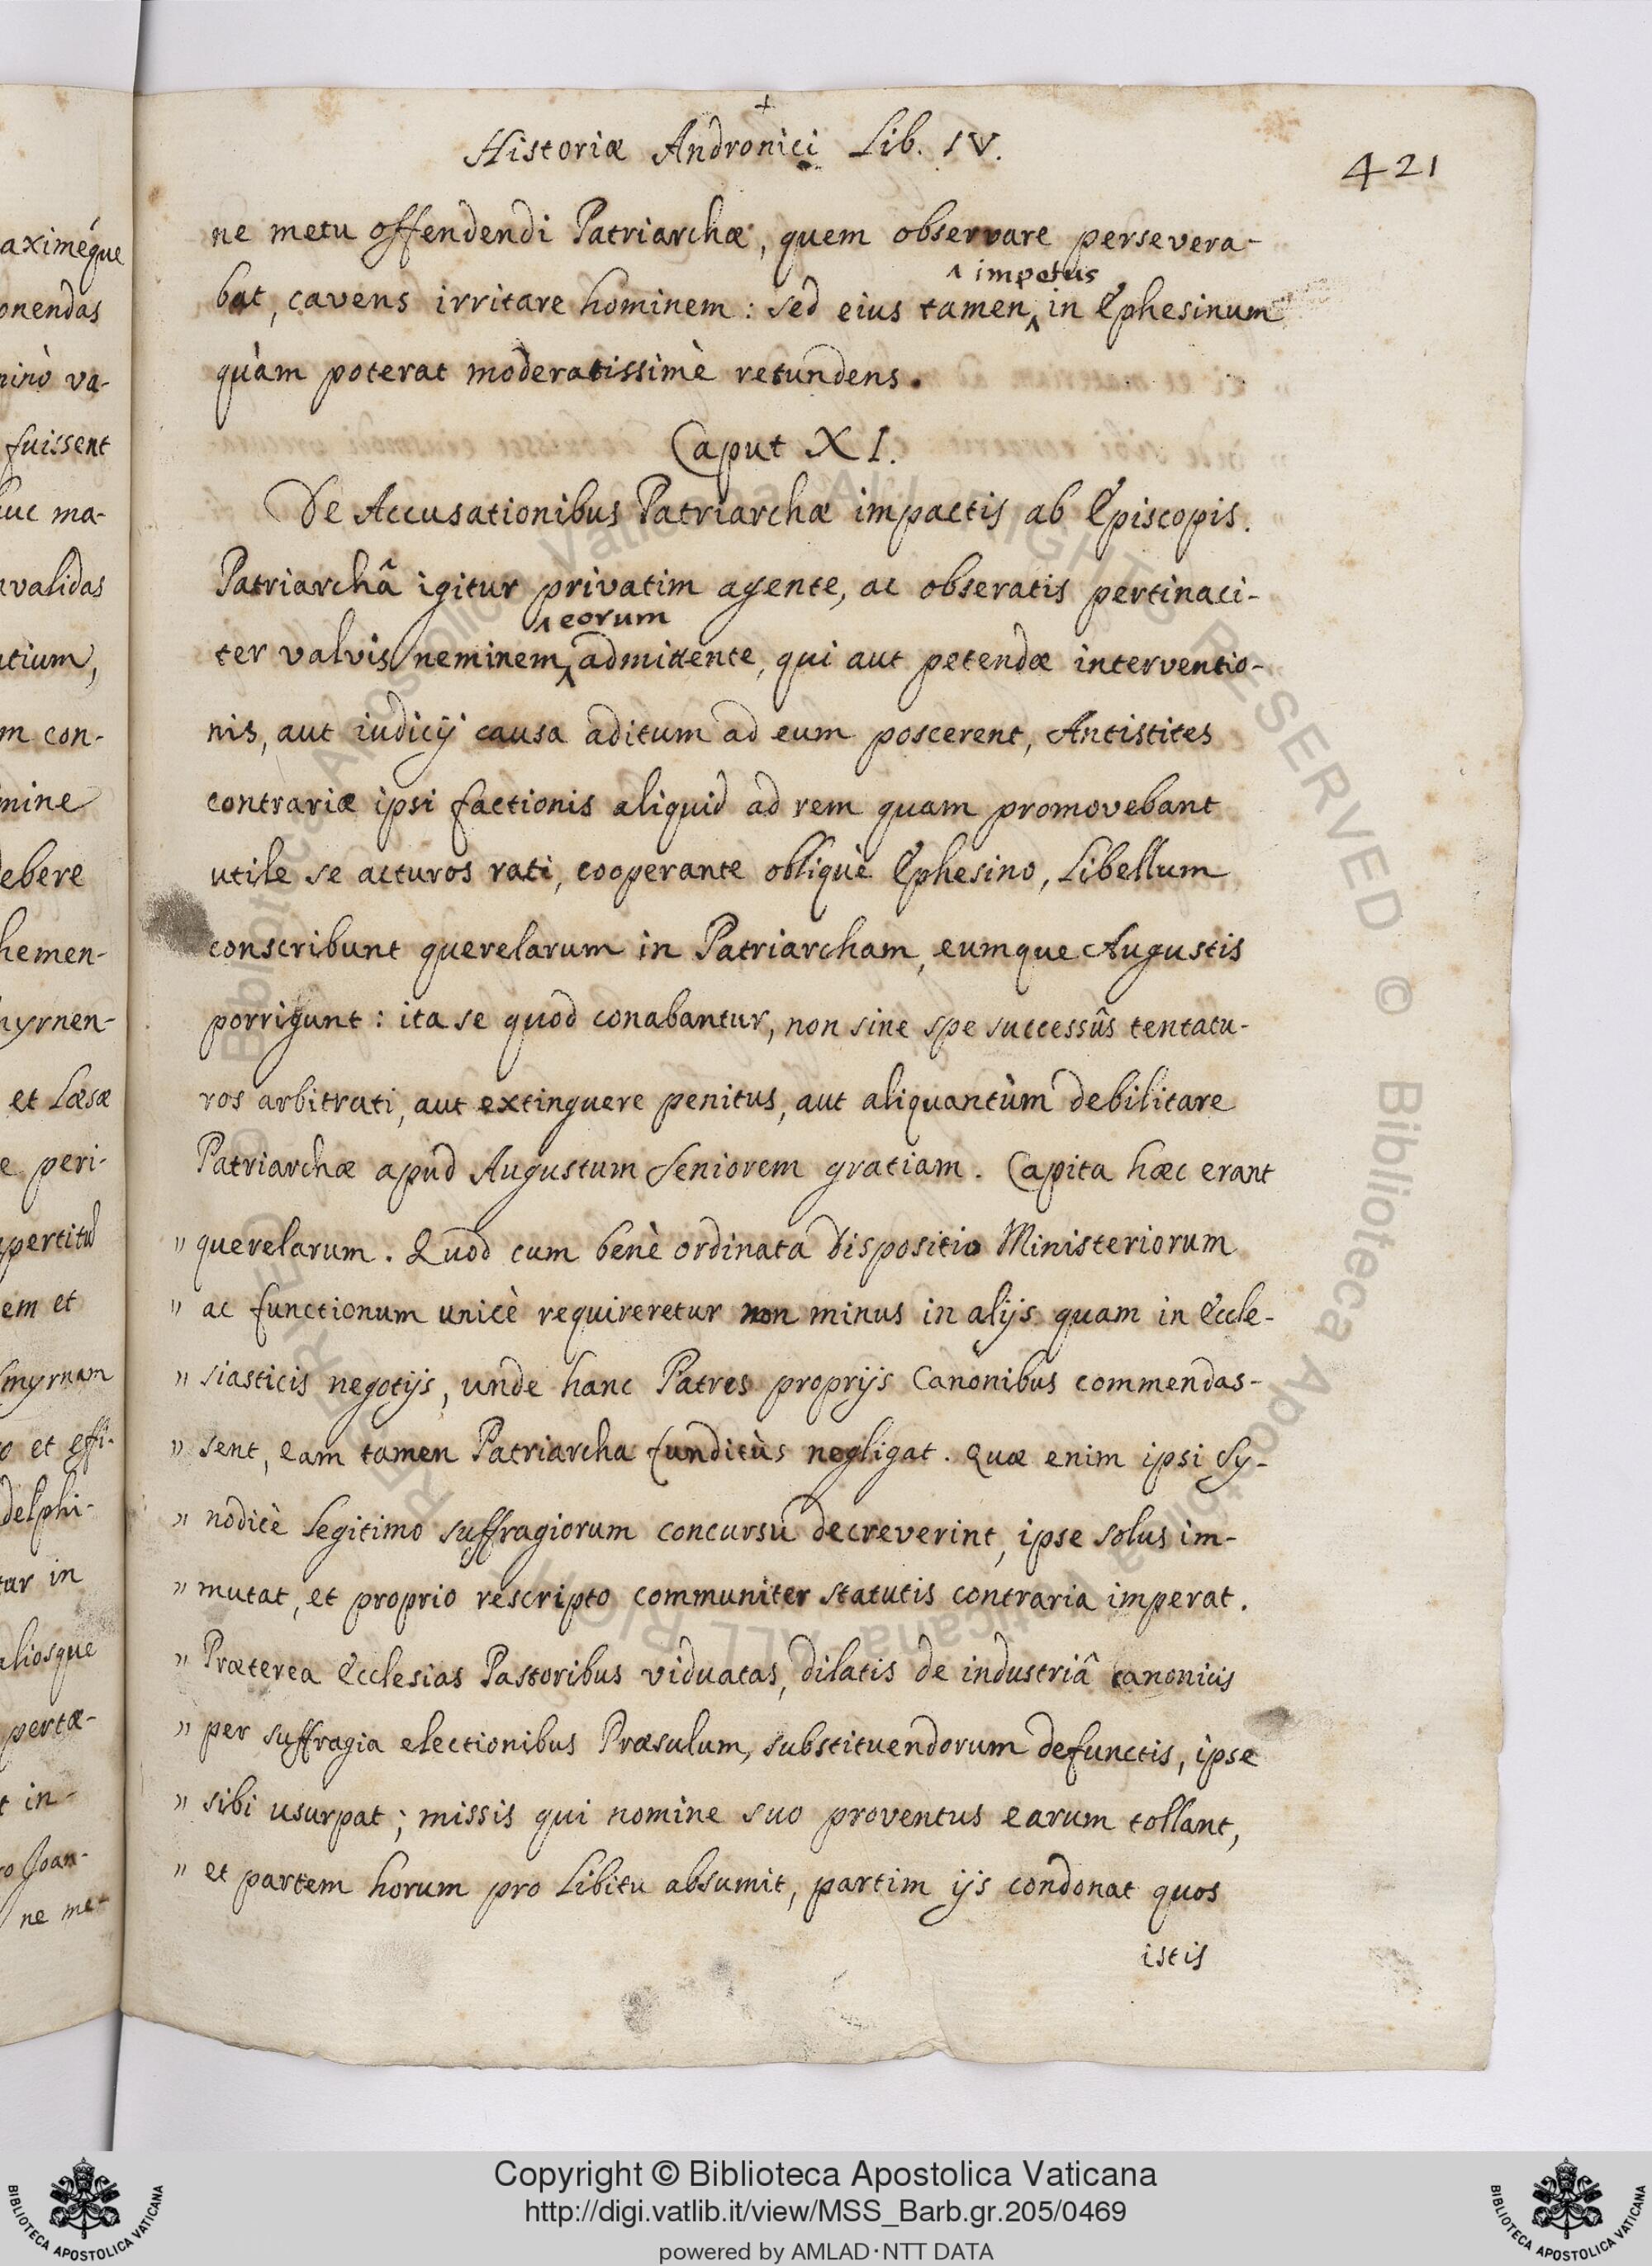 Historiæ Andronici Lib. IV.
421
ne metu offendendi Patriarchæ, quem observare persevera-
^ impetus
bat, cavens irritare hominem: sed eius tamen^ in Ephesinum
quàm poterat moderatissimè retundens.
Caput XI.
De Accusationibus Patriarchæ impactis ab Episcopis.
Patriarchâ igitur privatim agente, ac obseratis pertinaci-
^ eorum
ter valvis neminem^ admittente, qui aut petendæ interventio-
nis, aut iudicij causa aditum ad eum poscerent, Antistites
contrariæ ipsi factionis aliquid ad rem quam promovebant
utile se acturos rati, cooperante obliquè Ephesino, Libellum
conscribunt querelarum in Patriarcham, eumque Augustis
porrigunt: ita se quod conabantur, non sine spe successûs tentatu-
ros arbitrati, aut extinguere penitus, aut aliquantùm debilitare
Patriarchæ apud Augustum Seniorem gratiam. Capita hæc erant
" querelarum. Quod cum benè ordinata dispositio Ministeriorum
" ac functionum unicè requireretur non minus in alijs quam in Eccle-
" siasticis negotijs, unde hanc Patres proprijs Canonibus commendas-
" sent, eam tamen Patriarcha funditùs negligat. Quæ enim ipsi Sy-
" nodicè legitimo suffragiorum concursu decreverint, ipse solus im-
" mutat, et proprio rescripto communiter statutis contraria imperat.
" Præterea Ecclesias Pastoribus viduatas, dilatis de industriâ canonicis
" per suffragia electionibus Præsulum, substituendorum defunctis, ipse
" sibi usurpat; missis qui nomine suo proventus earum tollant,
" et partem horum pro libitu absumit, partim ijs condonat quos
istis
aximéque
onendas
va-
fuissent
uc ma-
validas
tium,
m con-
mine
ebere
hemen-
yrnen-
et Læsæ
e peri-
em et
myrnam
o et effi-
delphi-
tur in
aliosque
pertæ-
t in-
o Joan-
ne met
© Biblioteca Apostolica Vaticana ALL RIGHTS RESERVED
Copyright © Biblioteca Apostolica Vaticana
http://digi.vatlib.it/view/MSS_Barb.gr.205/0469
powered by AMLAD·NTT DATA
BIBLIOTECA APOSTOLICA VATICANA
BIBLIOTECA APOSTOLICA VATICANA